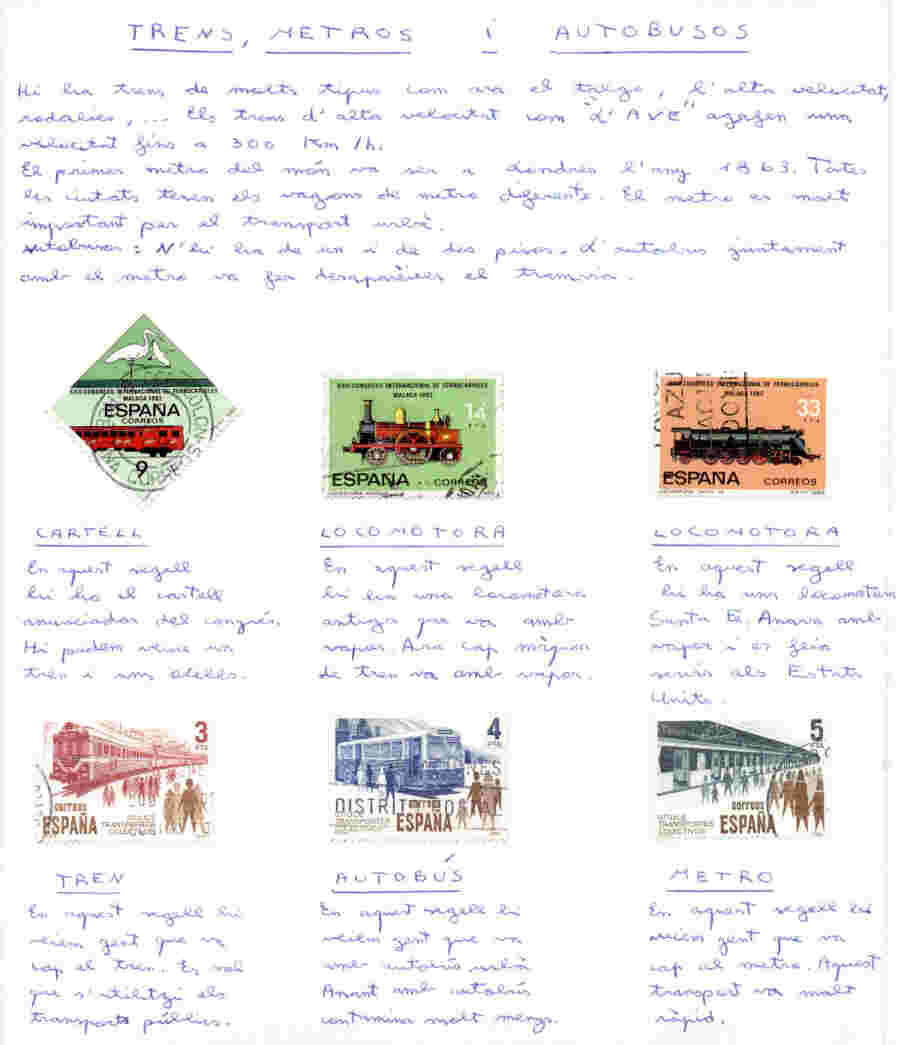 TRENS, METROS i AUTOBUSOS
Hi ha trens de molts tipus com ara el talgo, l'alta velocitat,
rodalies, ... Els trens d'alta velocitat com "L'AVE" agafen una
velocitat fins a 300 Km/h.
El primer metro del món va ser a Londres l'any 1863. Totes
les ciutats tenen els vagons de metro diferents. El metro es molt
important per al transport urbà.
Autobusos: N'hi ha de un i de dos pisos. L'autobus juntament
amb el metro va fer desaparèixer el tramvia.
XXIII CONGRESO INTERNACIONAL DE FERROCARRILES
MALAGA 1982
ESPAÑA
CORREOS
9
XXIII CONGRESO INTERNACIONAL DE FERROCARRILES
MALAGA 1982
14
PTA
ESPAÑA CORREOS
XXIII CONGRESO INTERNACIONAL DE FERROCARRILES
MALAGA 1982
33
PTA
ESPAÑA CORREOS
CARTELL
En aquest segell
hi ha el cartell
anunciador del congrés.
Hi podem veure un
tren i uns ocells.
LOCOMOTORA
En aquest segell
hi ha una locomotora
antiga que va amb
vapor. Ara cap màquina
de tren va amb vapor.
LOCOMOTORA
En aquest segell
hi ha una locomotora
Santa Fe. Anava amb
vapor i es feia
servir als Estats
Units.
3
PTA
correos
ESPAÑA
UTILICE
TRANSPORTES
COLECTIVOS
4
PTA
DISTRITO POSTAL
correos
UTILICE
TRANSPORTES
COLECTIVOS
ESPAÑA
5
PTA
correos
UTILICE
TRANSPORTES
COLECTIVOS
ESPAÑA
TREN
En aquest segell hi
veiem gent que va
cap al tren. Es vol
que s'utilitzi els
transports públics.
AUTOBÚS
En aquest segell hi
veiem gent que va
amb autobús urbà
Anant amb autobús
contamina molt menys.
METRO
En aquest segell hi
veiem gent que va
cap al metro. Aquest
transport va molt
ràpid.